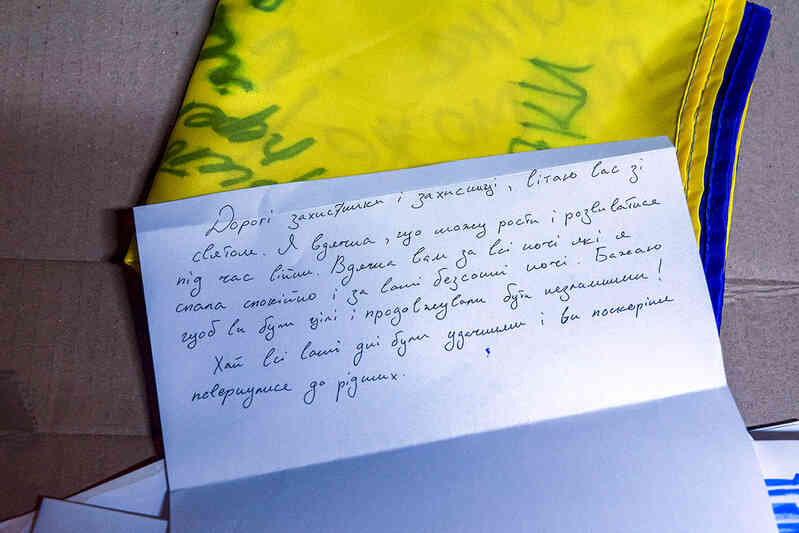 Дорогі захистники і захисниці, вітаю вас зі
святом. Я вдячна, що можу рости і розвиватися
під час війни. Вдячна вам за всі ночі які я
спала спокійно і за ваші безсонні ночі. Бажаю
щоб ви були цілі і продовжували бути незламними!
Хай всі ваші дні були удачними і ви поскоріше
повернулися до рідних.